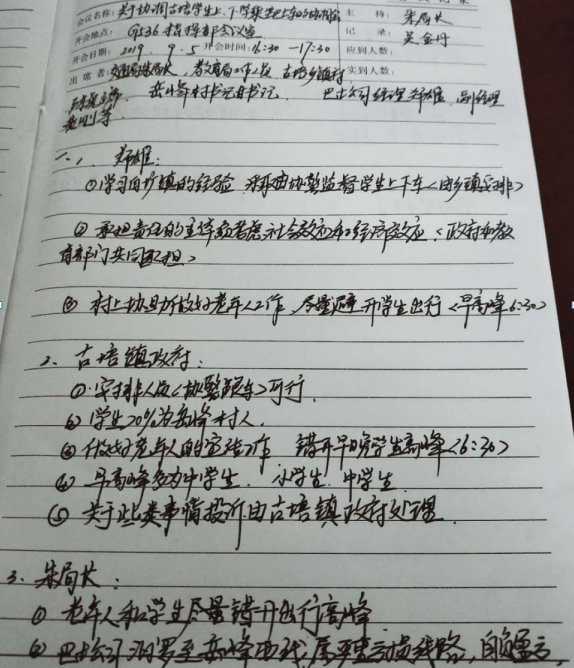 会议名称：关于协调古培学生上、下学乘坐巴士的协调会 主 持：朱局长
开会地点：G536指挥部会议室 记 录：吴金丹
开会日期：2019.9.5 开会时间：16:30—17:30 应到人数：
出 席 者：交通局朱局长，教育局 古培乡镇 实到人数：
岳峰村书记 书记、巴士公司经理郑雄、副经理
刚等
一、郑雄：
①学习白 镇的经验 采取由协警监督学生上下车<由乡镇安排>
②承担责任的主体须考虑社会效应和经济效应<政府和教
育部门共同承担>
③村上协助做好老年人工作，尽量避开学生出行<早高峰6:30>
2、古培镇政府：
①安排人员<协警跟车>可行.
②学生20%为岳峰村人.
③做好老年人的宣传工作 错开早晚学生高峰<6:30>
④早高峰多为中学生、小学生、中学生
⑤关于此类事情投诉由古培镇政府处理.
3、朱局长：
①老年人和学生尽量错开出行高峰
②巴士公司汨罗至岳峰 线，属严重亏损线路，自负盈亏，